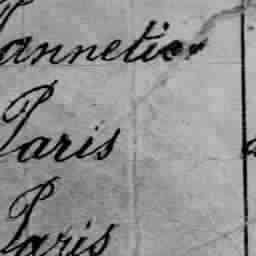 annetier
Paris
Paris